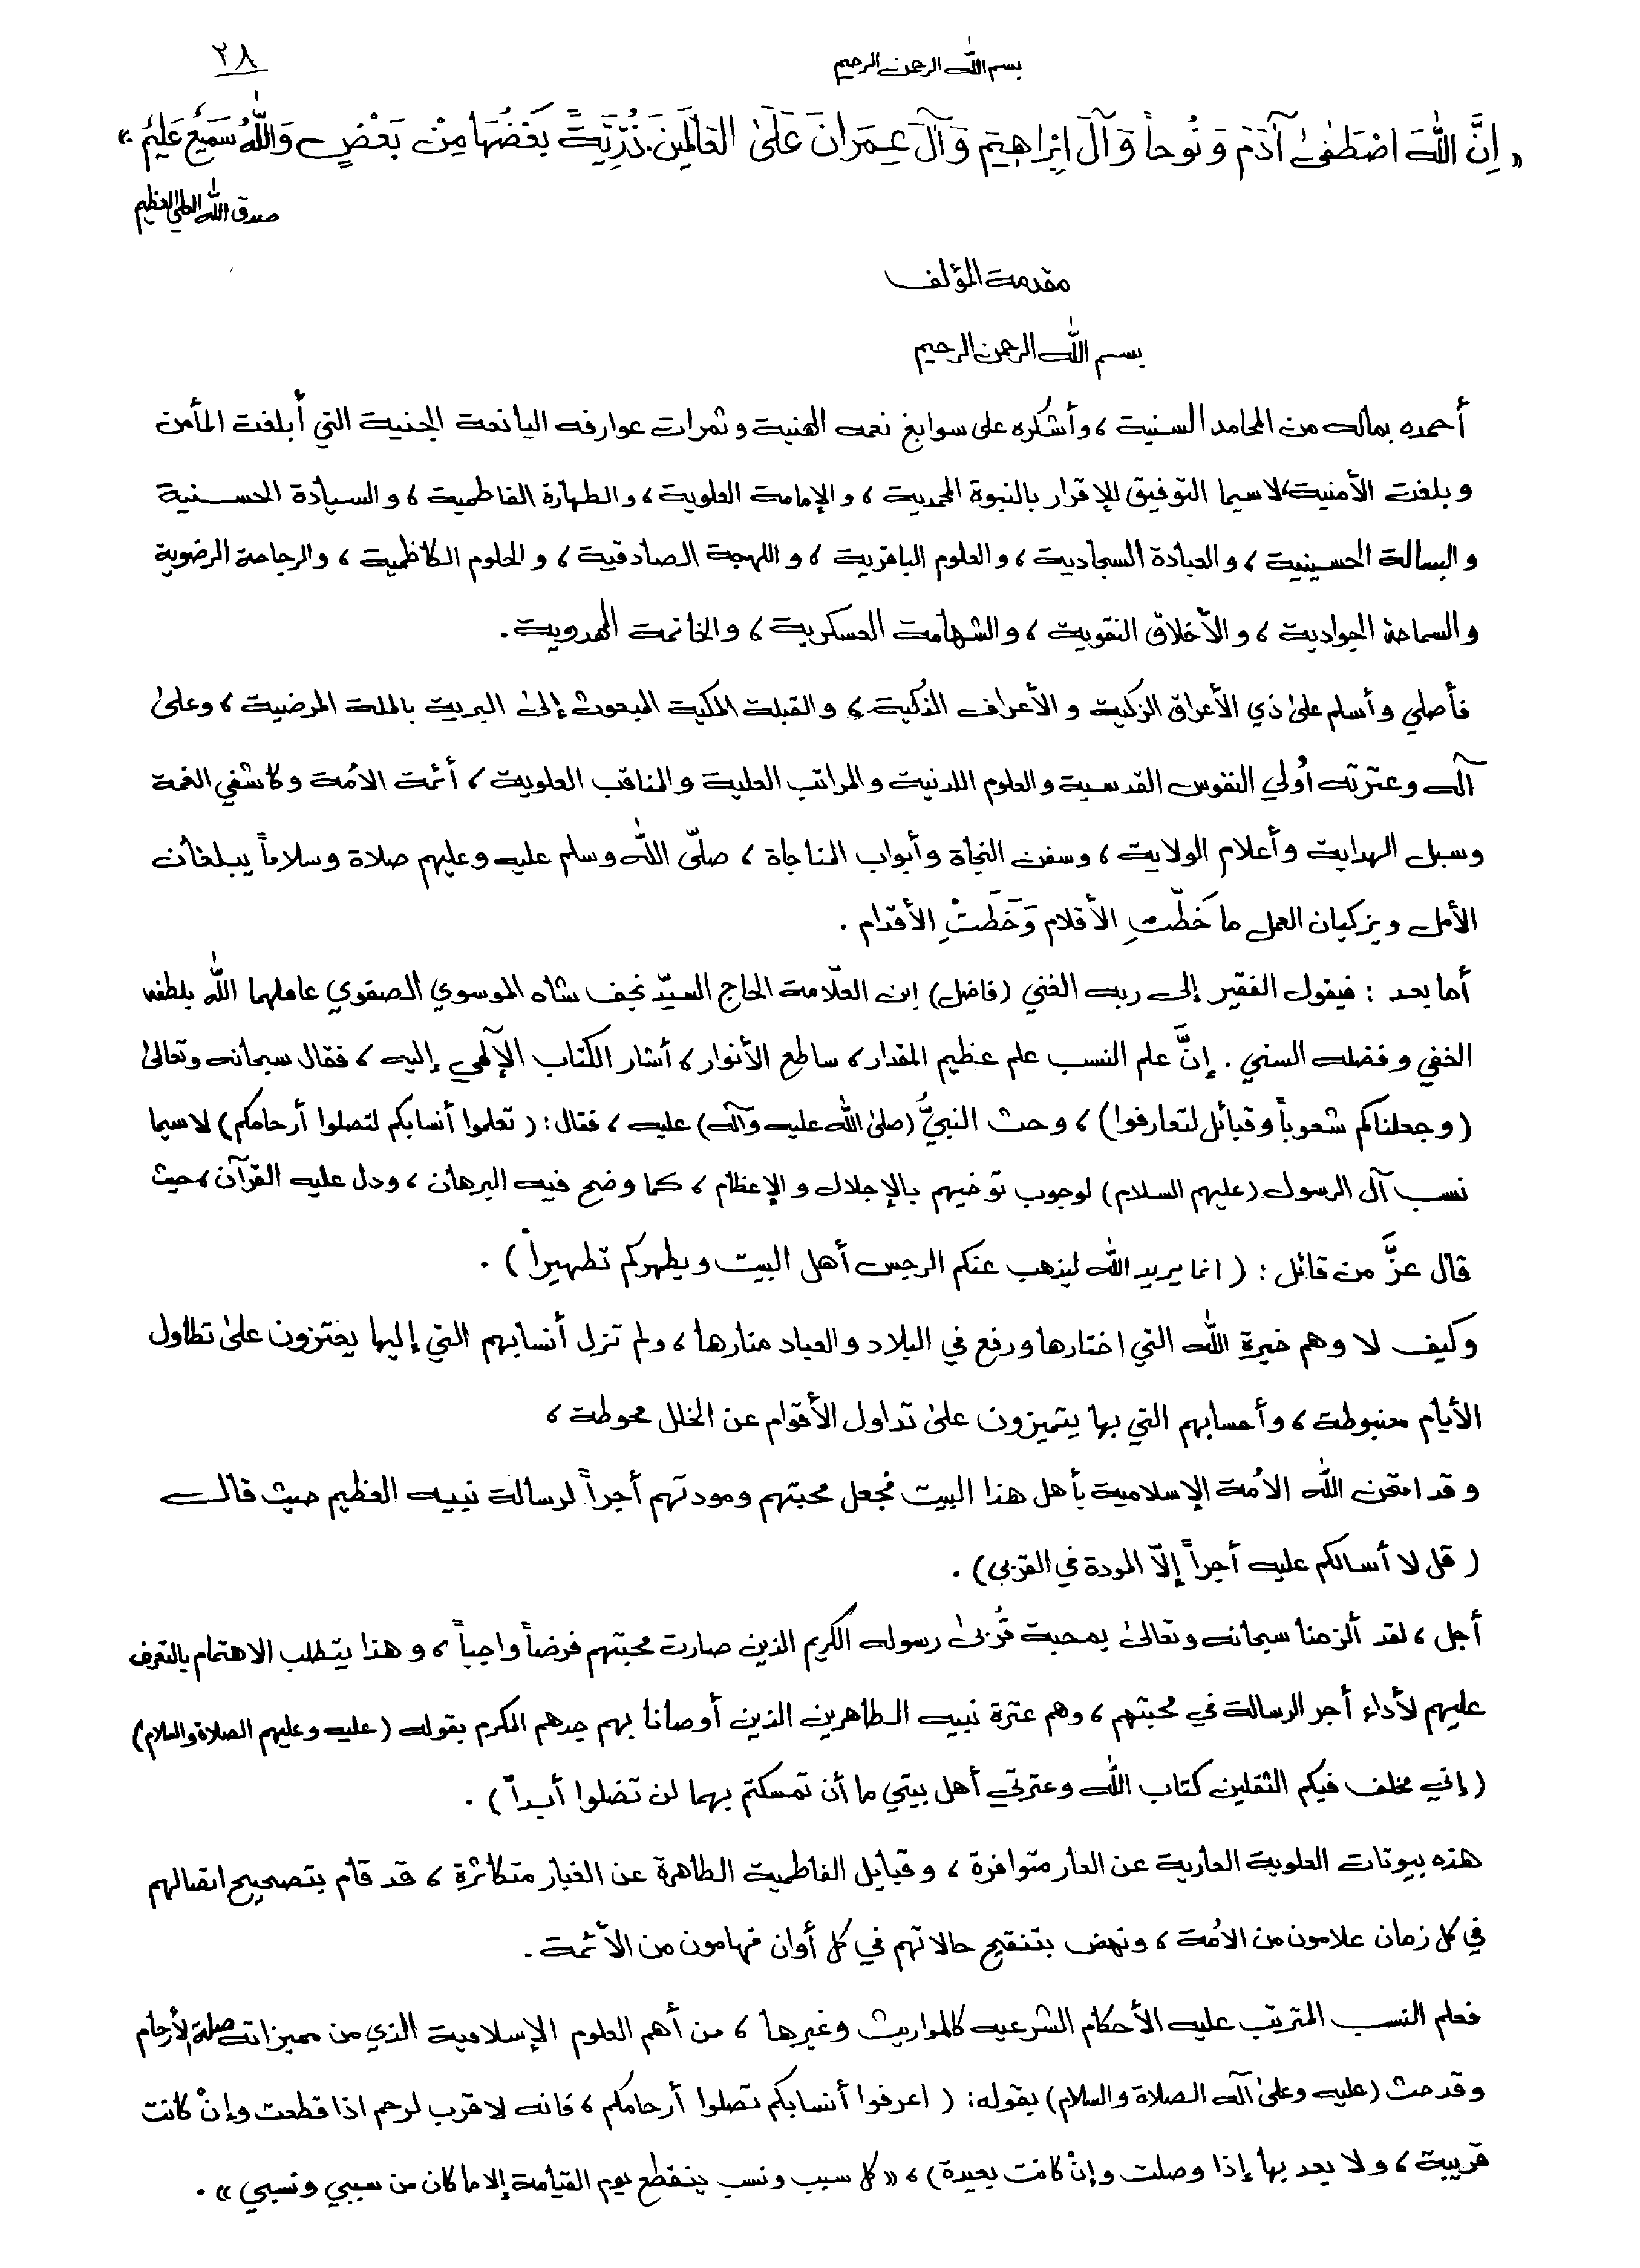 بسم الله الرحمن الرحيم
٢٨
« اِنَّ اللّٰهَ اصْطَفىٰ آدَمَ وَ نُوحاً وَ آلَ اِبْراهِيمَ وَ آلَ عِمَرانَ عَلَىٰ العَالَمِينَ. ذُرِّيَّةً بَعْضُهَا مِنْ بَعْضٍ وَاللّٰهُ سَمِيعٌ عَلِيمٌ. »
صدق الله العلي العظيم
مقدمة المؤلف
بسم الله الرحمن الرحيم
أحمده بماله من المحامد السنية ، وأشكُره على سوابغ نعمه الهنية وثمرات عوارفه اليانعة الجنية التي أبلغت المأمن
وبلغت الأمنية، لاسيما التوفيق للإقرار بالنبوة المحمدية ، والإمامة العلوية ، والطهارة الفاطمية ، والسيادة الحسنية
والبسالة الحسينية ، والعبادة السجادية ، والعلوم الباقرية ، واللهجة الصادقية ، والحلوم الكاظمية ، والرجاحة الرضوية
والسماحة الجوادية ، والأخلاق النقوية ، والشهامة العسكرية ، والخاتمة المهدوية .
فأصلي وأسلم علىٰ ذي الأعراق الزكية والأعراف الذكية ، والقبلة المكية المبعوث إلىٰ البرية بالملة المرضية ، وعلىٰ
آله وعترته أُولي النفوس القدسية والعلوم اللدنية والمراتب العلية والمناقب العلوية ، أئمة الاُمة وكاشفي الغمة
وسبل الهداية وأعلام الولاية ، وسفن النجاة وأبواب المناجاة ، صلّى اللّٰه وسلم عليه وعليهم صلاة وسلاماً يبلغان
الأمل ويزكيان العمل ما خَطّتِ الأقلام وَخَطَتْ الأقدام .
أما بعد : فيقول الفقير إلى ربه الغني (فاضل) ابن العلّامة الحاج السيّد نجف شاه الموسوي الصفوي عاملهما اللّٰه بلطفه
الخفي وفضله السني . إنَّ علم النسب علم عظيم المقدار ، ساطع الأنوار ، أشار الكتاب الإلٓهي إليه ، فقال سبحانه وتعالىٰ
(وجعلناكم شعوباً وقبائل لتعارفوا) ، وحث النبيُّ (صلىٰ اللّٰه عليه وآله) عليه ، فقال : (تعلموا أنسابكم لتصلوا أرحامكم) لاسيما
نسب آل الرسول (عليهم السلام) لوجوب توخيهم بالإجلال والإعظام ، كما وضح فيه البرهان ، ودل عليه القرآن ، حيث
قال عزَّ من قائل : (انما يريد اللّٰه ليذهب عنكم الرجس أهل البيت ويطهركم تطهيراً) .
وكيف لا وهم خيرة اللّٰه التي اختارها ورفع في البلاد والعباد منارها ، ولم تزل أنسابهم التي إليها يعتزون علىٰ تطاول
الأيام مضبوطة ، وأحسابهم التي بها يتميزون علىٰ تداول الأقوام عن الخلل محوطة ،
وقد امتحن اللّٰه الاُمة الإسلامية بأهل هذا البيت فجعل محبتهم ومودتهم أجراً لرسالة نبيه العظيم حيث قال
(قل لا أسالكم عليه أجراً إلّا المودة في القربى) .
أجل ، لقد ألزمنا سبحانه وتعالىٰ بمحبة قُربىٰ رسوله الكريم الذين صارت محبتهم فرضاً واجباً ، وهذا يتطلب الاهتمام بالتعرف
عليهم لأداء أجر الرسالة في محبتهم ، وهم عترة نبيه الطاهرين الذين أوصانا بهم جدهم المكرم بقوله (عليه وعليهم الصلاة والسلام)
(إني مخلف فيكم الثقلين كتاب اللّٰه وعترتي أهل بيتي ما أن تمسكتم بهما لن تضلوا أبداً) .
هذه بيوتات العلوية العارية عن العار متوافرة ، وقبايل الفاطمية الطاهرة عن الغبار متكاثرة ، قد قام بتصحيح اتصالهم
في كل زمان علامون من الاُمة ، ونهض بتنقيح حالاتهم في كل أوان فهامون من الأئمة .
فعلم النسب المترتب عليه الأحكام الشرعيه كالمواريث وغيرها ، من أهم العلوم الإسلامية الذي من مميزاته صلة الأرحام
وقد حث (عليه وعلىٰ آله الصلاة والسلام) بقوله : (اعرفوا أنسابكم تصلوا أرحامكم ، فانه لا قرب لرحم اذا قطعت وإنْ كانت
قريبة ، ولا بعد بها إذا وصلت وإنْ كانت بعيدة) ، «كل سبب ونسب ينقطع يوم القيامة إلا ما كان من سببي ونسبي» .